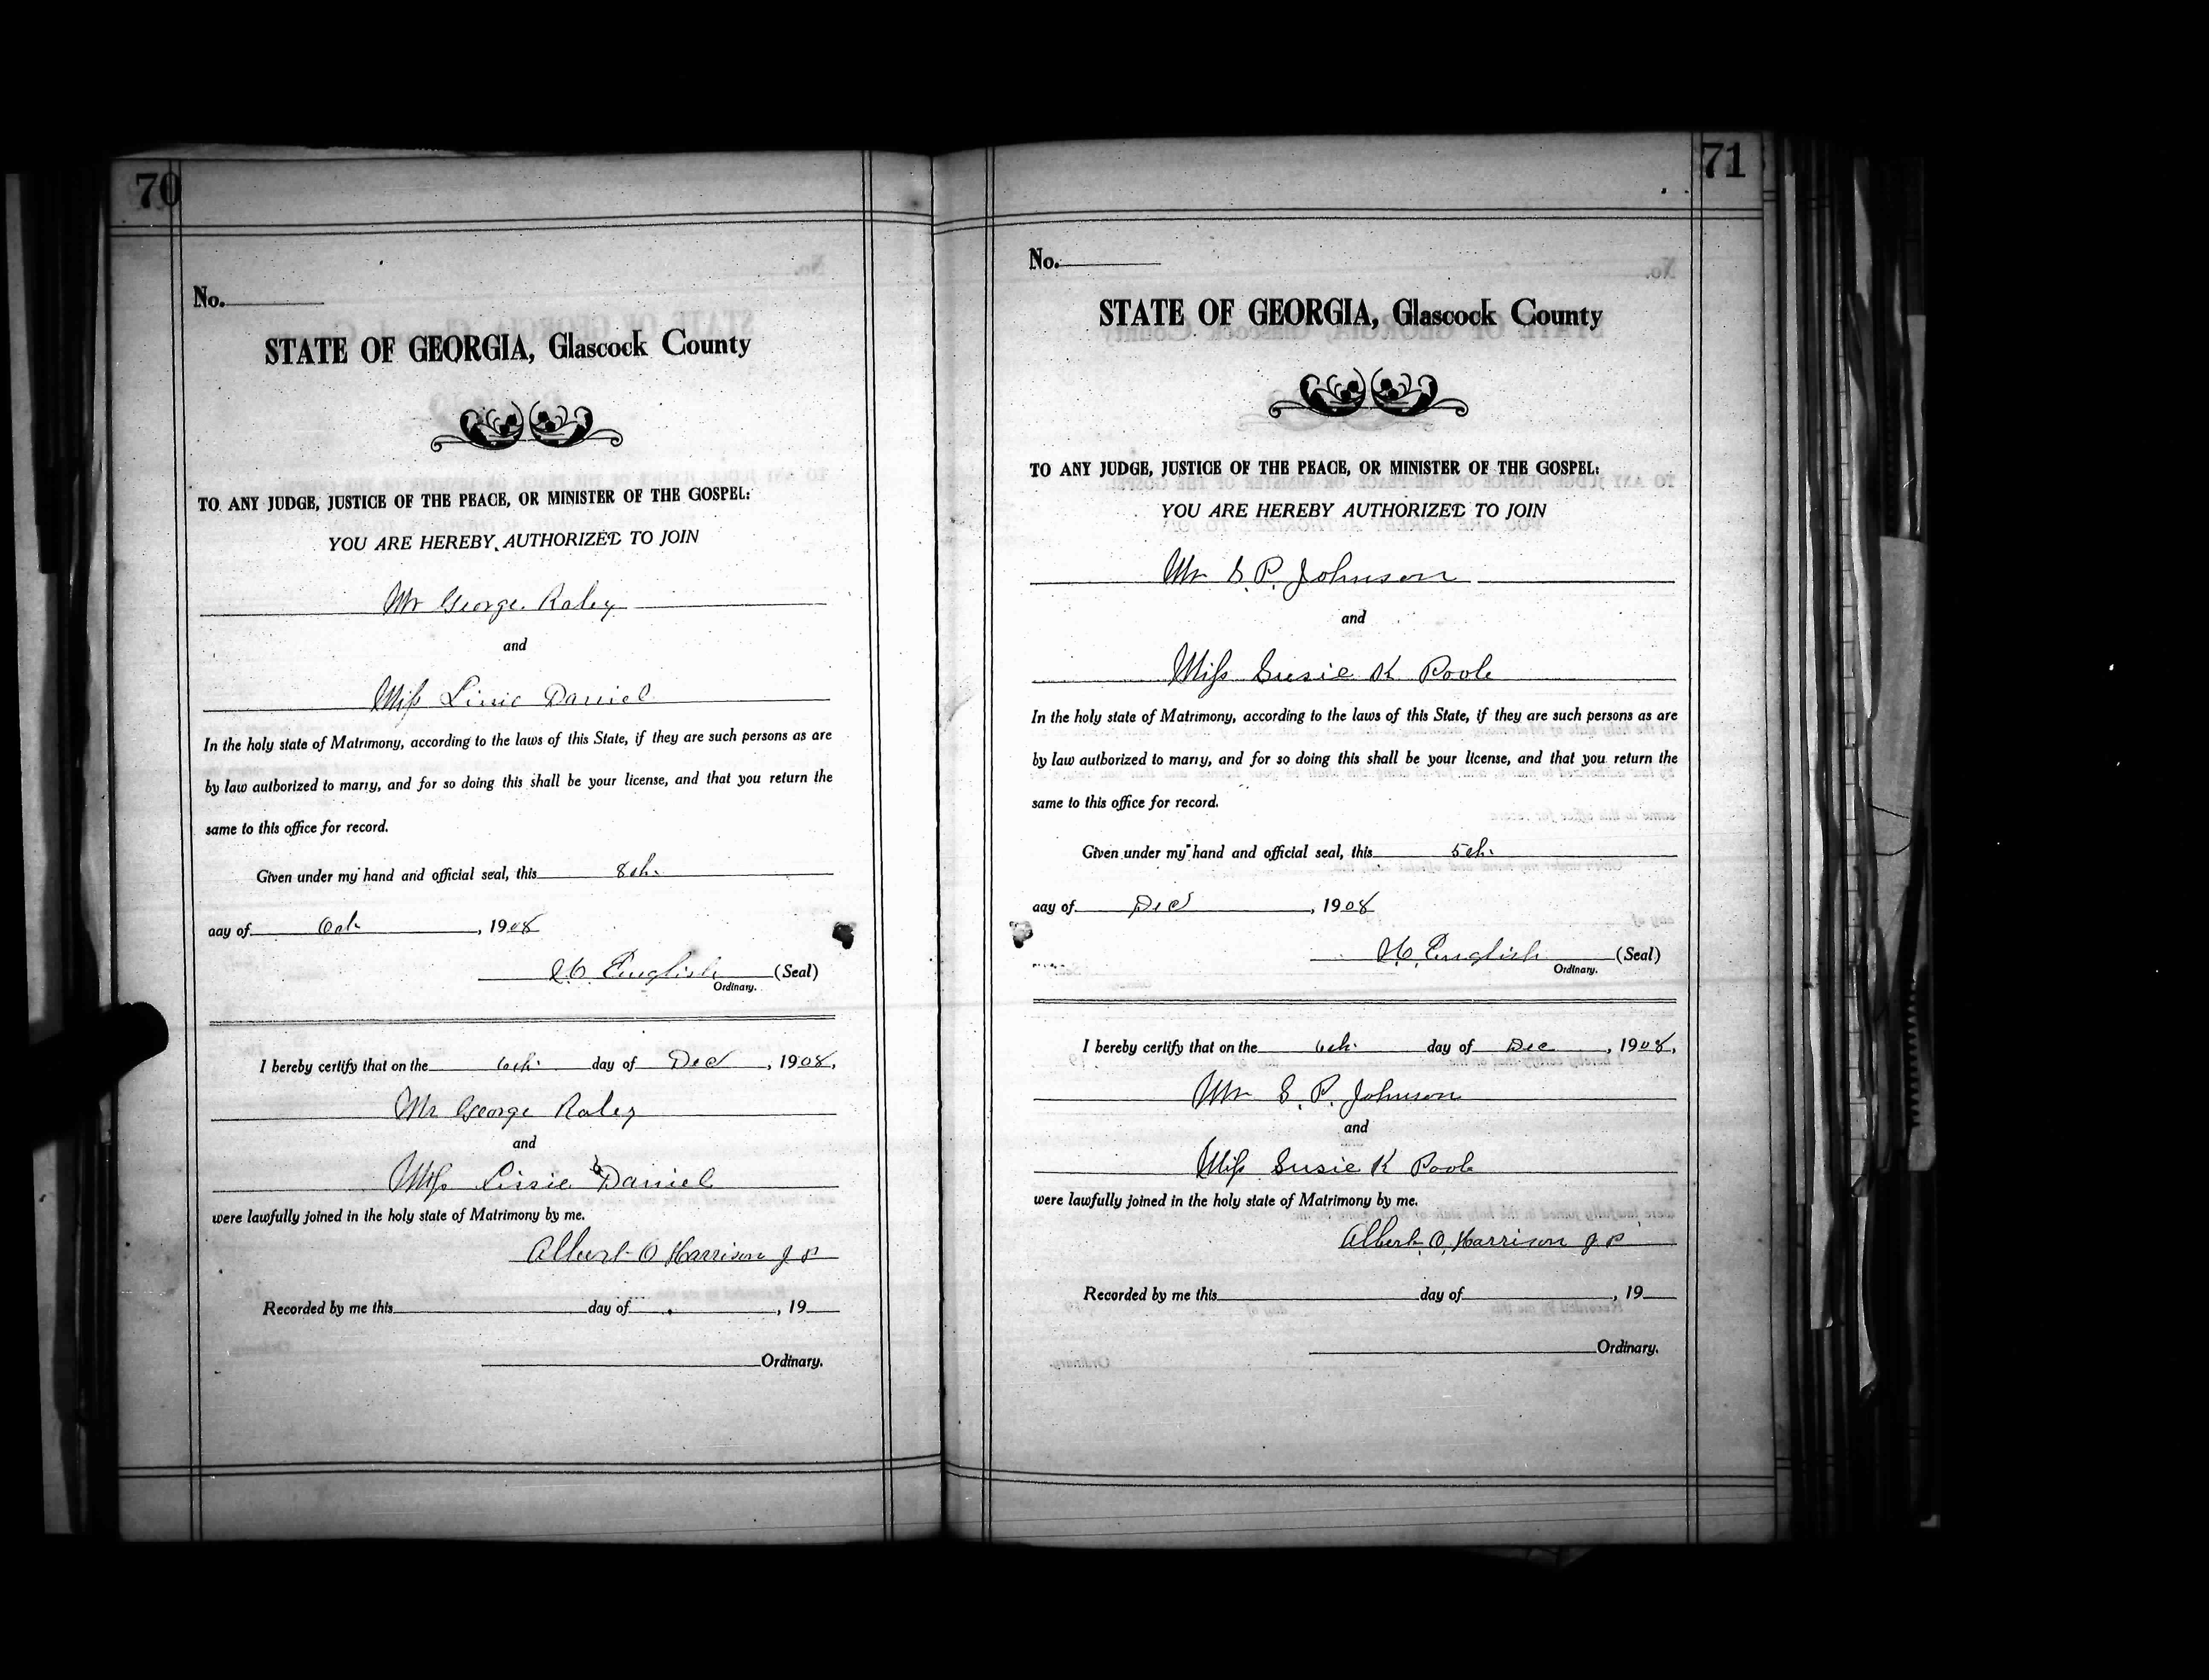 70
No.
STATE OF GEORGIA, Glascock County
TO ANY JUDGE, JUSTICE OF THE PEACE, OR MINISTER OF THE GOSPEL:
YOU ARE HEREBY AUTHORIZED TO JOIN
Mr George Raley
and
Miss Linie Daniel
In the holy state of Matrimony, according to the laws of this State, if they are such persons as are
by law authorized to marry, and for so doing this shall be your license, and that you return the
same to this office for record.
Given under my hand and official seal, this 8th.
day of Oct, 1908
English (Seal)
Ordinary.
I hereby certify that on the 6th. day of Dec, 1908,
Mr George Raley
and
Miss Lissie Daniel
were lawfully joined in the holy state of Matrimony by me.
Albert O Harrison J P
Recorded by me this day of , 19
Ordinary.
71
No.
STATE OF GEORGIA, Glascock County
TO ANY JUDGE, JUSTICE OF THE PEACE, OR MINISTER OF THE GOSPEL:
YOU ARE HEREBY AUTHORIZED TO JOIN
Mr S. P. Johnson
and
Miss Susie K Poole
In the holy state of Matrimony, according to the laws of this State, if they are such persons as are
by law authorized to marry, and for so doing this shall be your license, and that you return the
same to this office for record.
Given under my hand and official seal, this 5th.
day of Dec, 1908
English (Seal)
Ordinary.
I hereby certify that on the 6th. day of Dec, 1908,
Mr S. P. Johnson
and
Miss Susie K Poole
were lawfully joined in the holy state of Matrimony by me.
Albert O. Harrison J P
Recorded by me this day of , 19
Ordinary.